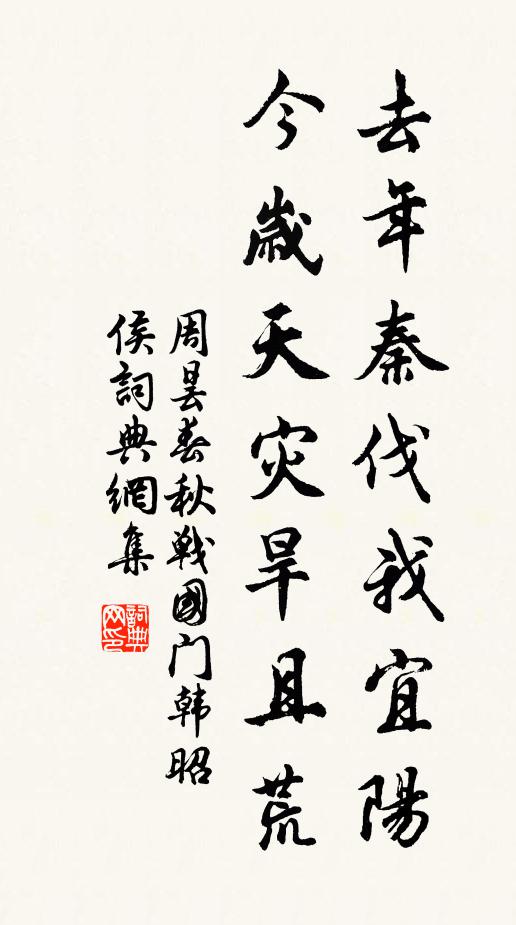 去年秦伐我宜陽
今歲天灾旱且荒
周曇春秋戰國门韩昭
侯詞典網集
詞典
网印